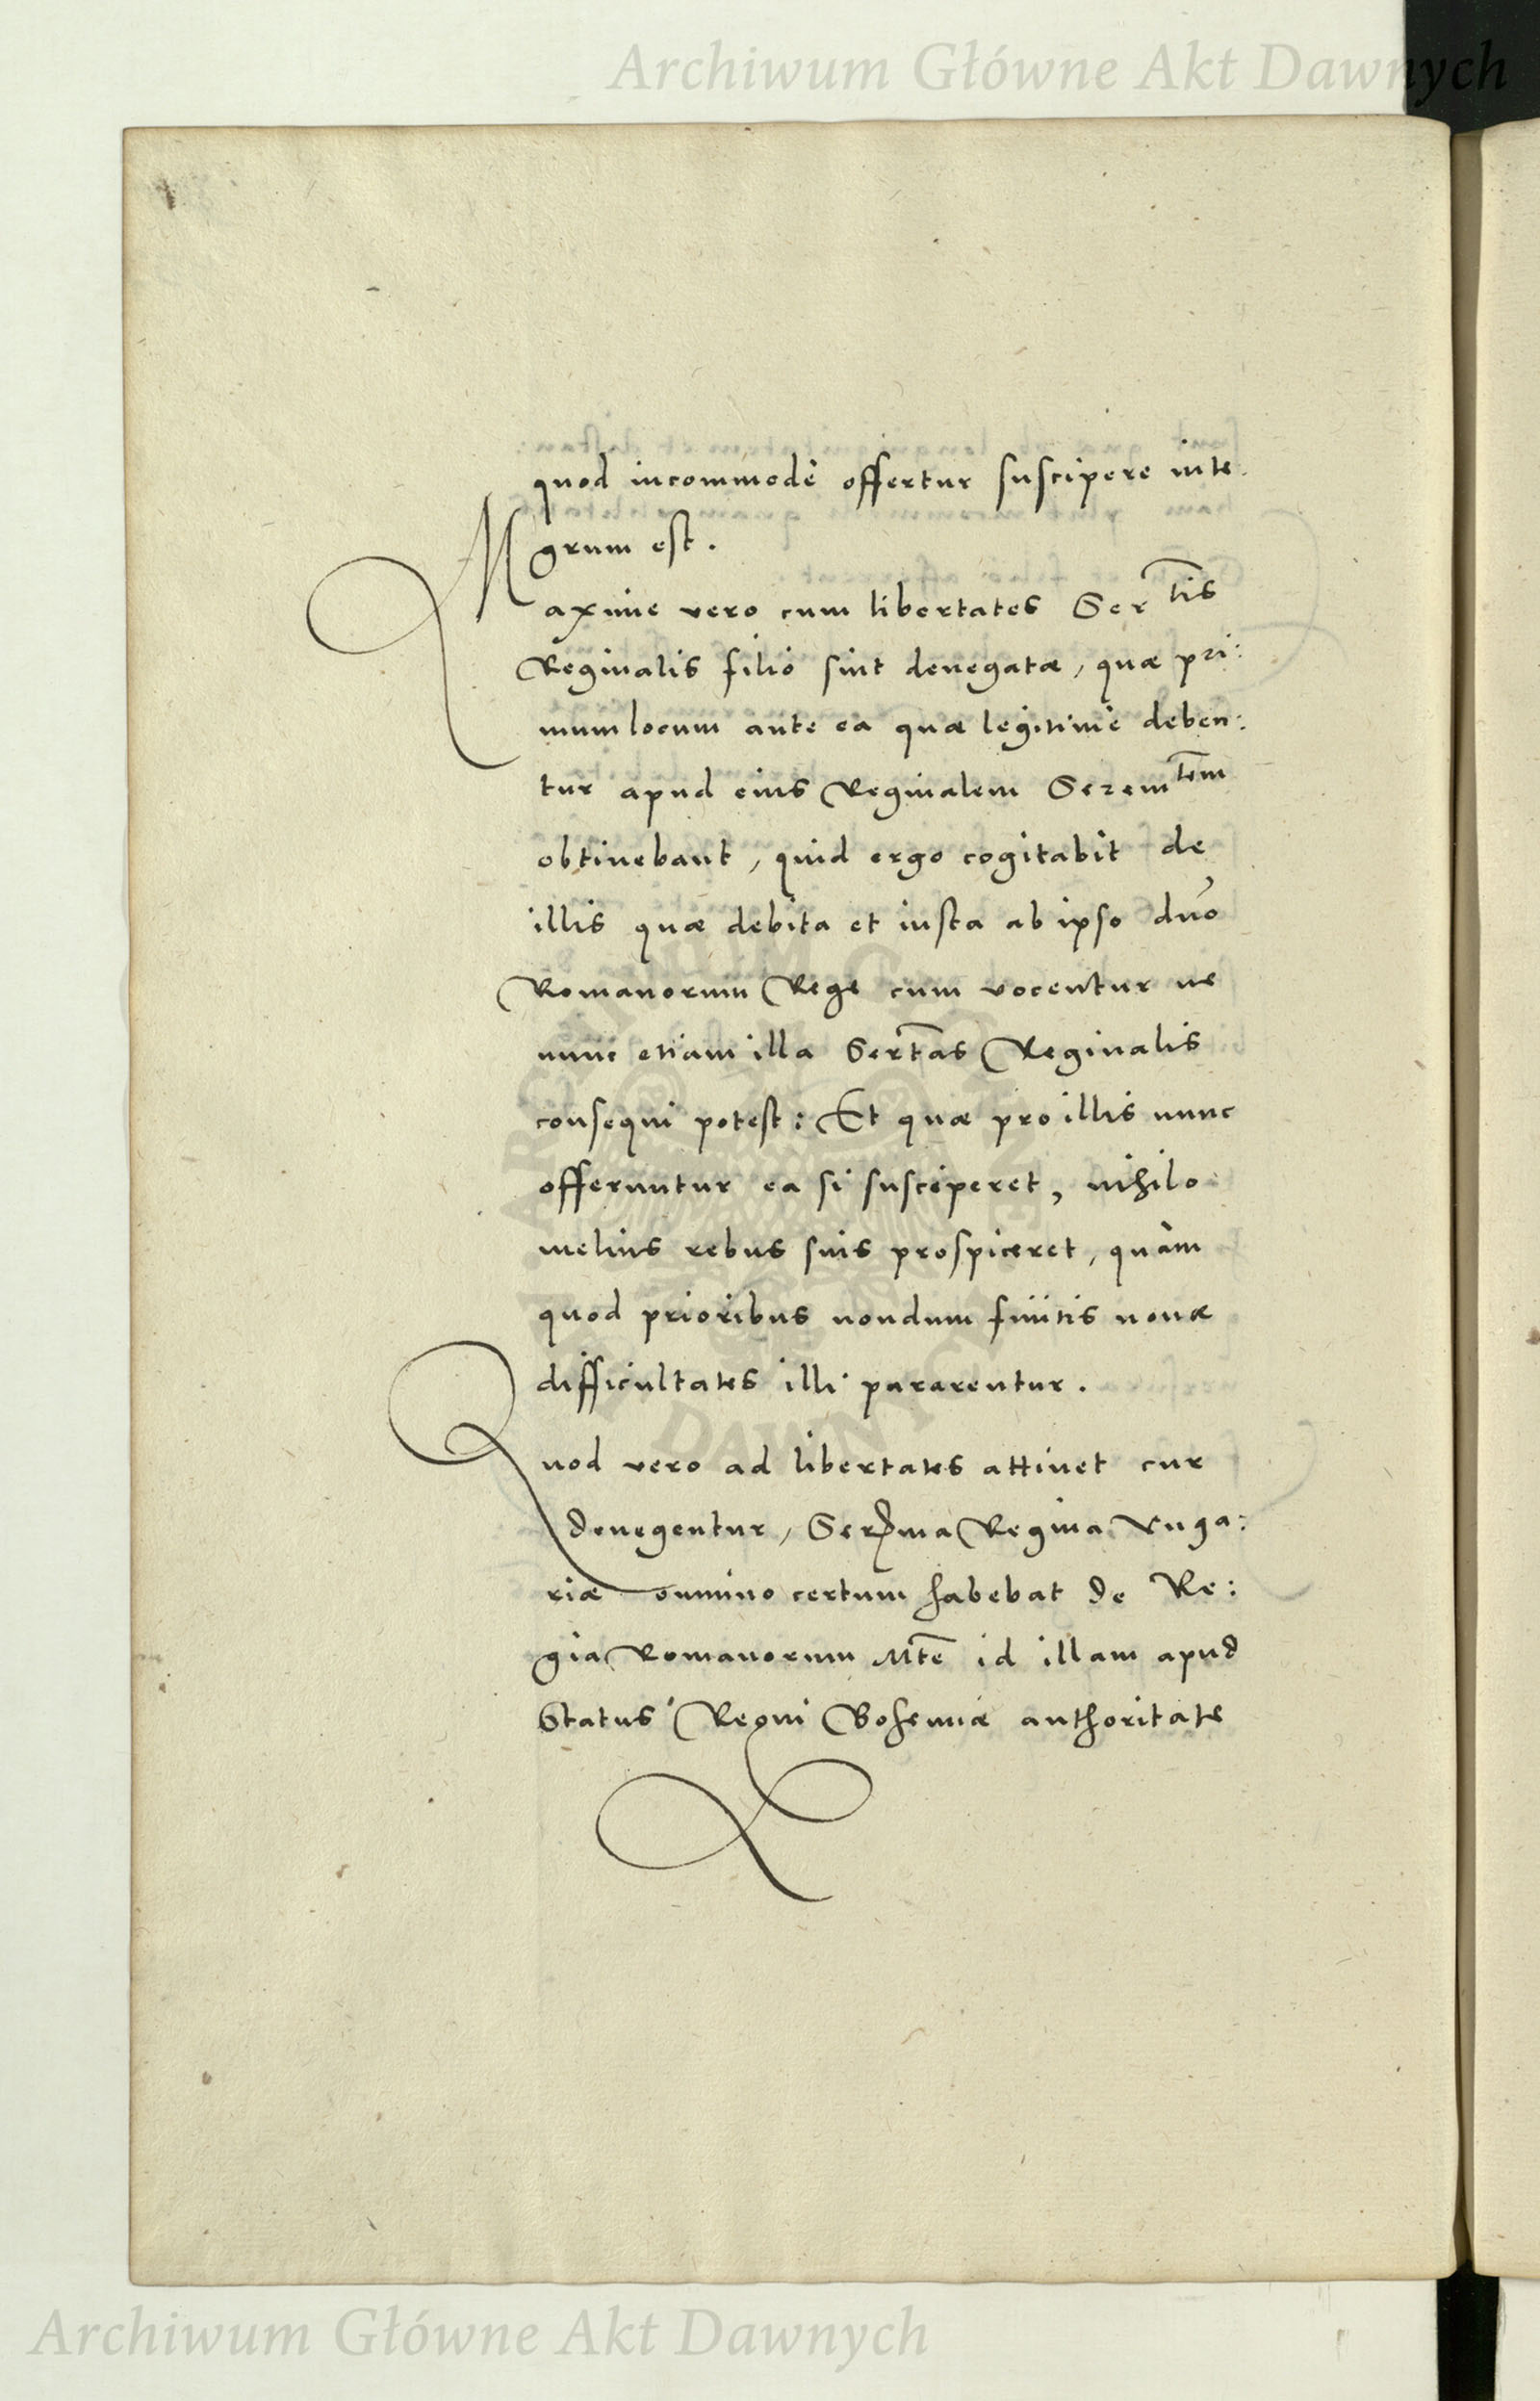 Archiwum Główne Akt Dawnych
quod incommodè offertur suscipere inte.
grum est.
Maxime vero cum libertates Ser tis
Reginalis filio sint denegatæ, quæ pri:
mum locum ante ea quæ legitimè deben:
tur apud eius Reginalem Serem tem
obtinebant, quid ergo cogitabit de
illis quæ debita et iusta ab ipso duo
Romanorum Rege cum vocentur ne
nunc etiam illa Sertas Reginalis
consequi potest: Et quæ pro illis nunc
offeruntur ea si susciperet, nihilo
melius rebus suis prospiceret, quàm
quod prioribus nondum finitis nouæ
difficultates illi pararentur.
Quod vero ad libertates attinet cur
denegentur, Serma Regina Vnga:
riæ omnino certum habebat de Re:
gia Romanorum Mte id illam apud
Status Regni Bohemiæ authoritate
Archiwum Główne Akt Dawnych